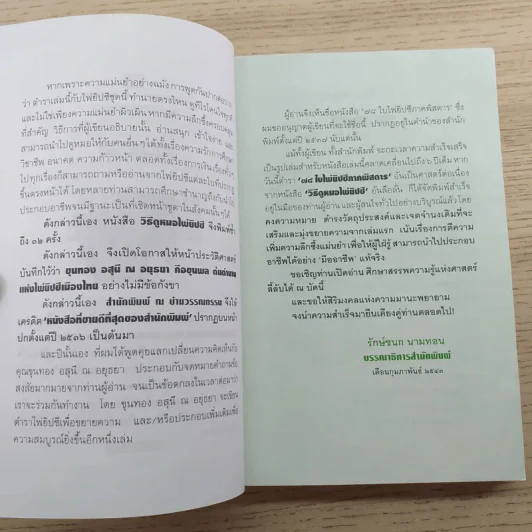 หากเพราะความแม่นยำอย่างฉมัง การพูดกันปากต่อปาก
ว่า ตำราเล่มนี้กับไพ่ยิปซีชุดนี้ ทำนายตรงไหน ดูที่ไรโดนใจทุกที
และไม่ใช่เพียงความแม่นยำผิวเผิน หากมีความลึกซึ้ง
ที่สำคัญ วิธีการที่ผู้เขียนอธิบายนั้น อ่านสนุก เข้าใจง่าย
สามารถนำไปดูหมอให้กับคนอื่น ๆ ได้ทั้งเรื่องความรัก
วิชาชีพ อนาคต ความก้าวหน้า ตลอดทั้งเรื่องการเงิน
ไปทุกเรื่องก็สามารถถามหรืออ่านจากไพ่ยิปซีแต่ละใบที่ปรากฏ
ขึ้นตรงหน้าได้ โดยหลายท่านสามารถศึกษาชำนาญถึงกับนำไป
ประกอบอาชีพจนมีฐานะเป็นที่เชิดหน้าชูตาในสังคมนั้น ๆ ได้
ดังกล่าวนี้เอง หนังสือ วิธีดูหมอไพ่ยิปซี จึงพิมพ์ซ้ำ
ถึง ๑๒ ครั้ง
ดังกล่าวนี้เอง จึงเปิดโอกาสให้หน้าประวัติศาสตร์
บันทึกไว้ว่า ขุนทอง อสุนี ณ อยุธยา คือขุนพล ต้นตำนาน
แห่งไพ่ยิปซีเมืองไทย อย่างไม่มีข้อกังขา
ดังกล่าวนี้เอง สำนักพิมพ์ ณ บ้านวรรณกรรม จึงให้
เครดิต 'หนังสือที่ขายดีที่สุดของสำนักพิมพ์' ปรากฏบนหน้า
ปกตั้งแต่ปี ๒๕๓๖ เป็นต้นมา
และปีนั้นเอง ที่ผมได้พูดคุยแลกเปลี่ยนความคิดเห็นกับ
คุณขุนทอง อสุนี ณ อยุธยา ประกอบกับจดหมายคำถามข้อ
สงสัยมากมายจากท่านผู้อ่าน จนเป็นข้อตกลงในเวลาต่อมาว่า
เราจะร่วมกันทำงาน โดย ขุนทอง อสุนี ณ อยุธยา จะเขียน
ตำราไพ่ยิปซีเพื่อขยายความ และ/หรือประกอบเพิ่มเติมเพื่อ
ความสมบูรณ์ยิ่งขึ้นอีกหนึ่งเล่ม
ผู้อ่านจึงเห็นชื่อหนังสือ '๗๘ ใบไพ่ยิปซีภาคพิสดาร' ซึ่ง
ผมขออนุญาตผู้เขียนที่จะใช้ชื่อนี้ ปรากฏอยู่ในคำนำของสำนัก
พิมพ์ตั้งแต่ปี ๒๕๓๗ นับแต่นั้น
แม้ทั้งผู้เขียน ทั้งสำนักพิมพ์ จะกะเวลาความสำเร็จเสร็จ
เป็นรูปเล่มสำหรับหนังสือเล่มนี้คลาดเคลื่อนไปถึง ๖ ปีเต็ม หาก
วันนี้ตำรา '๗๘ ใบไพ่ยิปซีภาคพิสดาร' อันเป็นศาสตร์ต่อเนื่อง
จากหนังสือ 'วิธีดูหมอไพ่ยิปซี' อันลือลั่น ก็ได้จัดพิมพ์สำเร็จ
อยู่ในมือของท่านผู้อ่าน และผู้สนใจทั่วไปอย่างบริบูรณ์แล้ว โดย
คงความหมาย ดำรงวัตถุประสงค์และเจตจำนงเดิมที่จะ
เสริมและมุ่งขยายความจากเล่มแรก เน้นเรื่องการตีความ
เพิ่มความลึกซึ้งแม่นยำ เพื่อให้ผู้ใฝ่รู้ สามารถนำไปประกอบ
อาชีพได้อย่าง 'มืออาชีพ' แท้จริง
ขอเชิญท่านเปิดอ่าน ศึกษาสรรพความรู้แห่งศาสตร์
ลี้ลับได้ ณ บัดนี้
และขอให้สิริมงคลแห่งความมานะพยายาม
จงนำความสำเร็จมายืนเคียงคู่ท่านตลอดไป!
รักษ์ชนก นามทอน
บรรณาธิการสำนักพิมพ์
เดือนกุมภาพันธ์ ๒๕๔๓